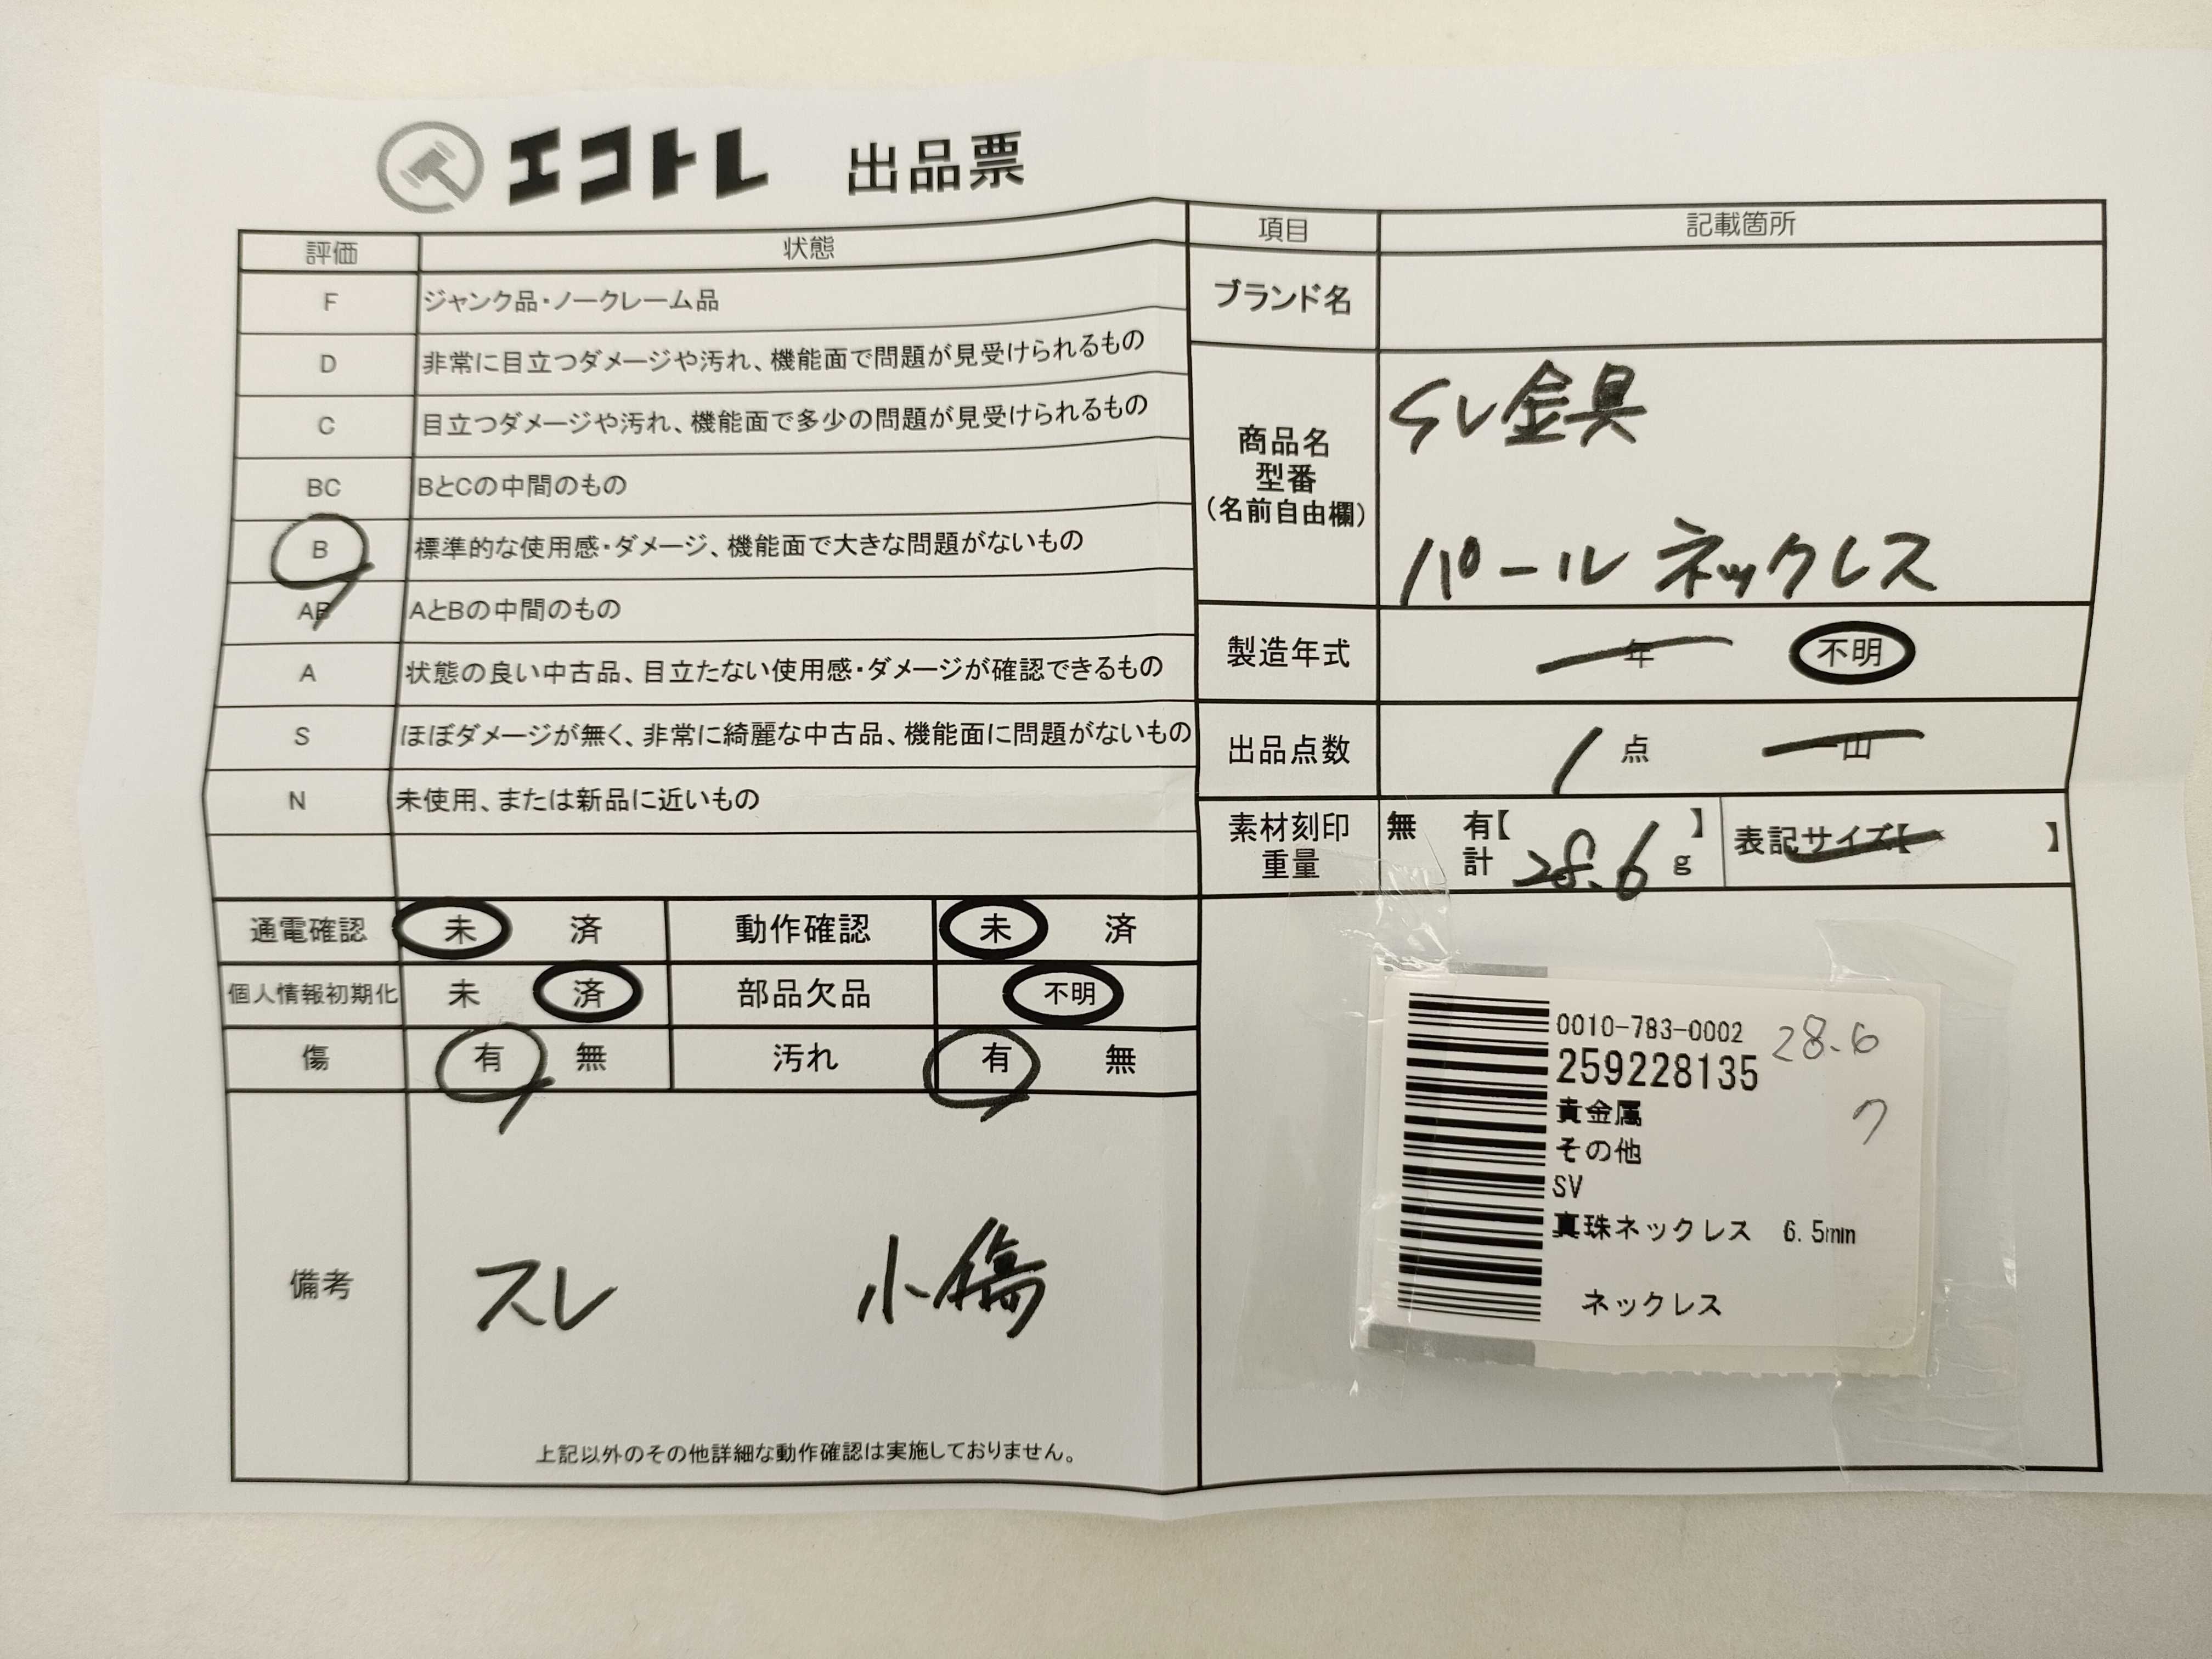 エコトレ 出品票
評価 状態
F ジャンク品・ノークレーム品
D 非常に目立つダメージや汚れ、機能面で問題が見受けられるもの
C 目立つダメージや汚れ、機能面で多少の問題が見受けられるもの
BC BとCの中間のもの
B 標準的な使用感・ダメージ、機能面で大きな問題がないもの
AB AとBの中間のもの
A 状態の良い中古品、目立たない使用感・ダメージが確認できるもの
S ほぼダメージが無く、非常に綺麗な中古品、機能面に問題がないもの
N 未使用、または新品に近いもの
通電確認 未 済 動作確認 未 済
個人情報初期化 未 済 部品欠品 不明
傷 有 無 汚れ 有 無
備考 スレ 小傷
上記以外のその他詳細な動作確認は実施しておりません。
項目 記載箇所
ブランド名
商品名
型番
(名前自由欄)
SV金具
パールネックレス
製造年式 年 不明
出品点数 1点 一山
素材刻印
重量
無 有【 】
計 28.6 g
表記サイズ【 】
0010-783-0002
28.6
259228135
貴金属
その他
SV
真珠ネックレス 6.5mm
ネックレス